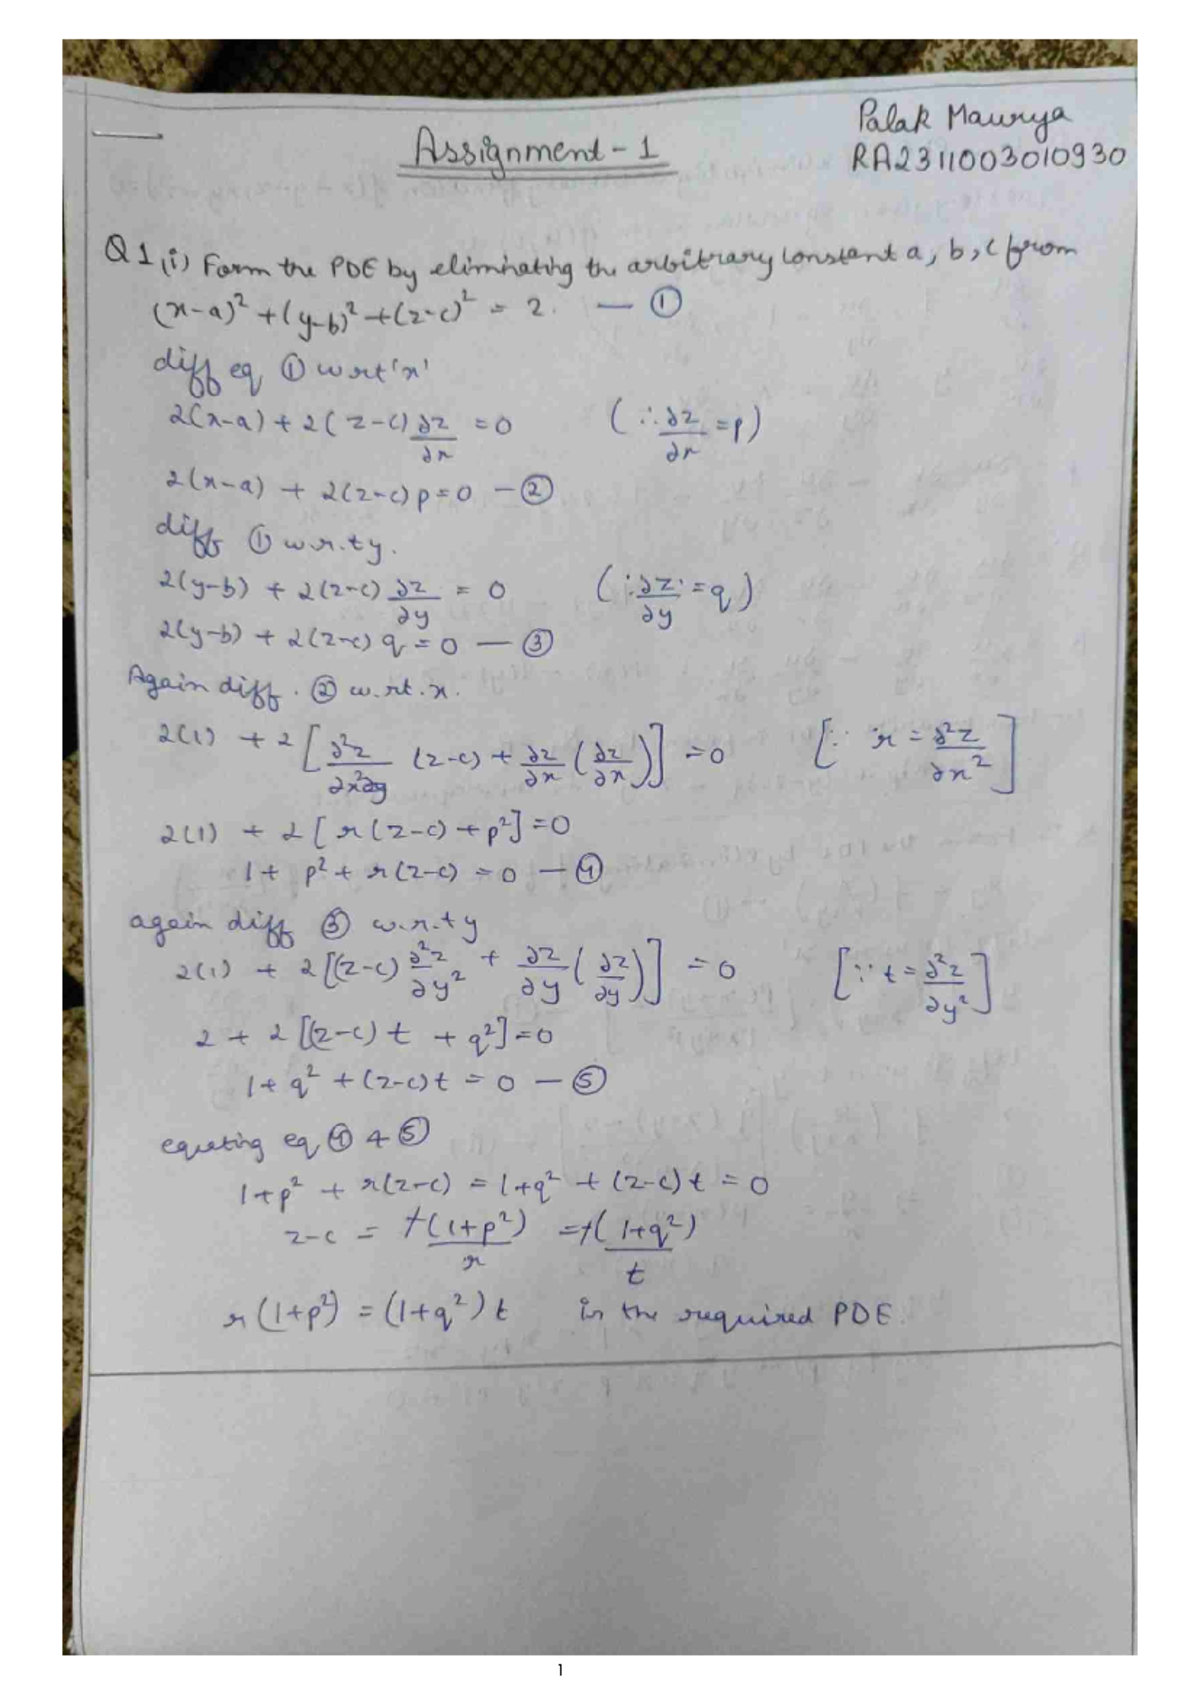 Palak Maurya
Assignment - 1
RA2311003010930
Q1 (i) Form the PDE by eliminating the arbitrary constant a, b, c from
(x-a)² + (y-b)² + (z-c)² = 2. — ①
diff eq ① w rt 'x'
2(x-a) + 2(z-c) ∂z/∂x = 0 (∵ ∂z/∂x = p)
2(x-a) + 2(z-c) p = 0 — ②
diff ① w.r.t y.
2(y-b) + 2(z-c) ∂z/∂y = 0 (∵ ∂z/∂y = q)
2(y-b) + 2(z-c) q = 0 — ③
Again diff. ② w.rt.x.
2(1) + 2 [∂²z/∂x² (z-c) + ∂z/∂x (∂z/∂x)] = 0 [∵ r = ∂²z/∂x²]
2(1) + 2 [r(z-c) + p²] = 0
1 + p² + r(z-c) = 0 — ④
again diff ③ w.r.t y
2(1) + 2[(z-c) ∂²z/∂y² + ∂z/∂y (∂z/∂y)] = 0 [∵ t = ∂²z/∂y²]
2 + 2 [(z-c) t + q²] = 0
1 + q² + (z-c) t = 0 — ⑤
equating eq ④ & ⑤
1+p² + r(z-c) = 1+q² + (z-c) t = 0
z-c = +(1+p²)/r = +(1+q²)/t
r(1+p²) = (1+q²) t is the required PDE.
1